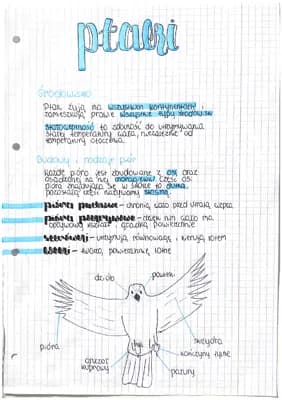 ptaki
Środowisko
Ptaki żyją na wszystkich kontynentach i
zamieszkują prawie wszystkie typy środowisk
stałocieplność to zdolność do utrzymywania
stałej temperatury ciała, niezależnie od
temperatury otoczenia.
Budowy i rodzaje piór
Każde pióro jest zbudowane z osi oraz
osadzonej na niej chorągiewki część osi
pióra znajdująca się w skórze to dutka,
pozostałą część nazywamy stosiną.
pióra puchowe - chronią ciało przed utratą ciepła
pióra pokrywowe - dzięki nim ciało ma
opływowy kształt i gładką powierzchnię
sterówki - utrzymują równowagę i kierują lotem
lotki - tworzą powierzchnię lotną
dziób
pazurki
pióra
skrzydła
kończyny tylne
gruczoł
kuprowy
pazury